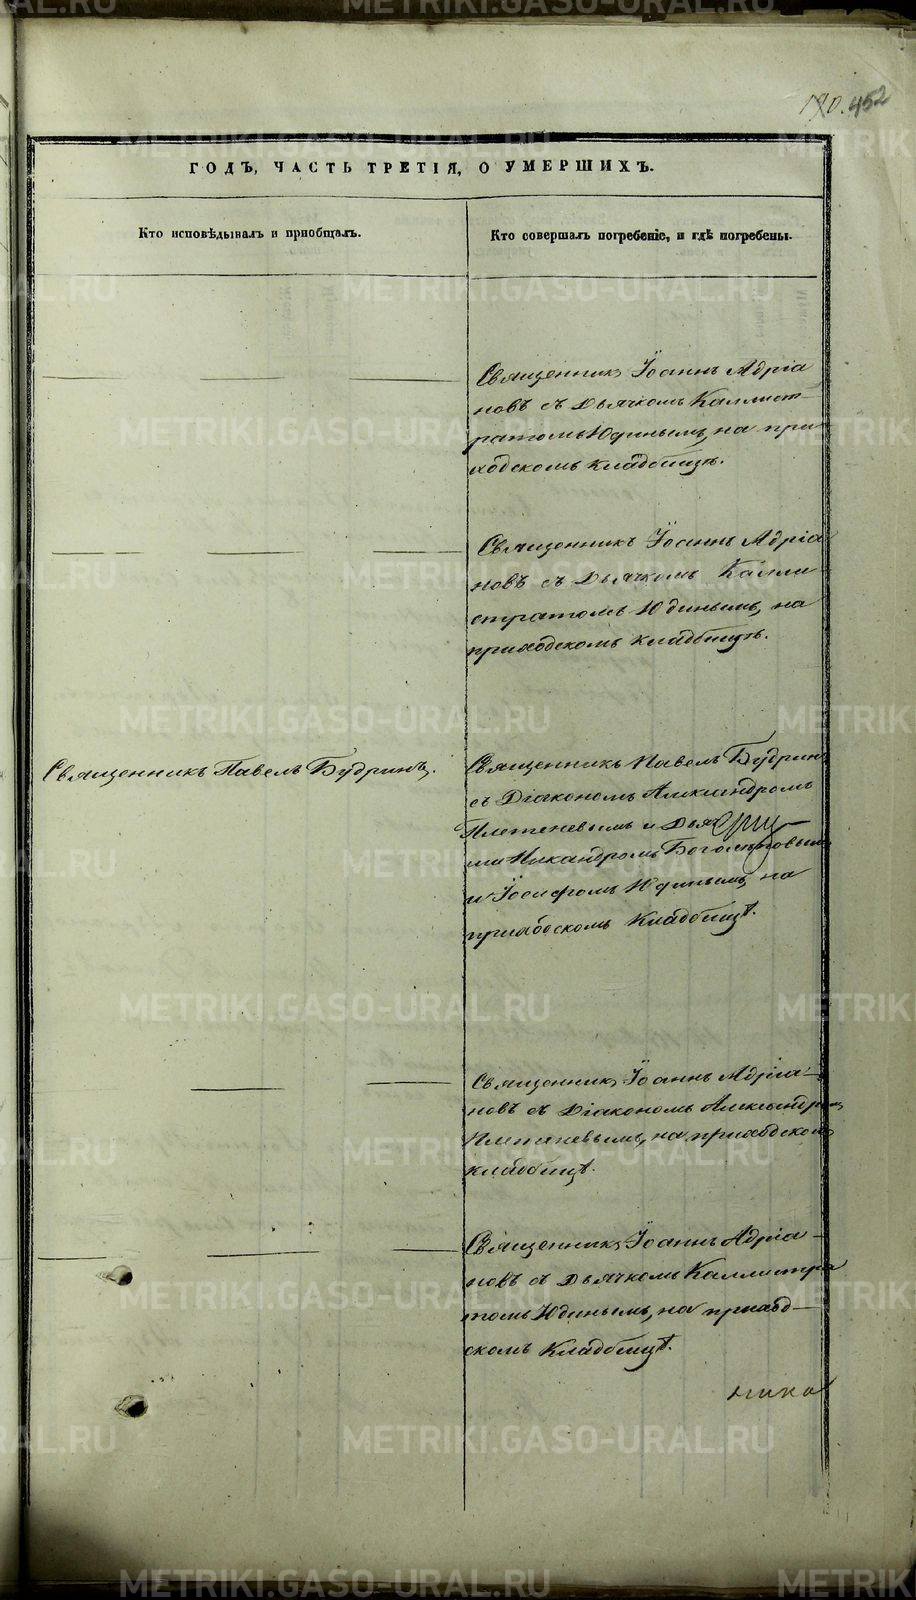 190. 452
ГОДЪ, ЧАСТЬ ТРЕТІЯ, О УМЕРШИХЪ.
Кто исповѣдывалъ и приобщалъ.
Кто совершалъ погребеніе, и гдѣ погребены.
Священникъ Іоаннъ Адріа
новъ съ Дьячкомъ Каллист-
ратомъ Юдинымъ, на при-
ходскомъ кладбищѣ.
Священникъ Іоаннъ Адріа
новъ съ Дьячкомъ Калли
стратомъ Юдинымъ, на
приходскомъ кладбищѣ.
Священникъ Павелъ Будринъ.
Священникъ Павелъ Будринъ
съ Діакономъ Александромъ
Плетеневымъ и
ми Никандромъ Боголѣповымъ
и Іосифомъ Юдинымъ, на
приходскомъ Кладбищѣ.
Священникъ Іоаннъ Адріа-
новъ съ Діакономъ Александромъ
Плетеневымъ, на приходскомъ
кладбищѣ.
Священникъ Іоаннъ Адріа-
новъ съ Дьячкомъ Каллистра
томъ Юдинымъ, на приход-
скомъ Кладбищѣ.
METRIKI.GASO-URAL.RU